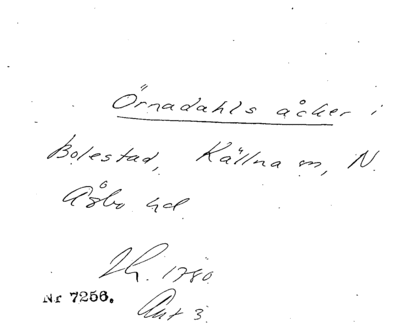 Örnadahls åcker i
Bolestad, Källna sn, N.
Åsbo hd
Lh. 1780.
Nr 7256.
Akt 3.